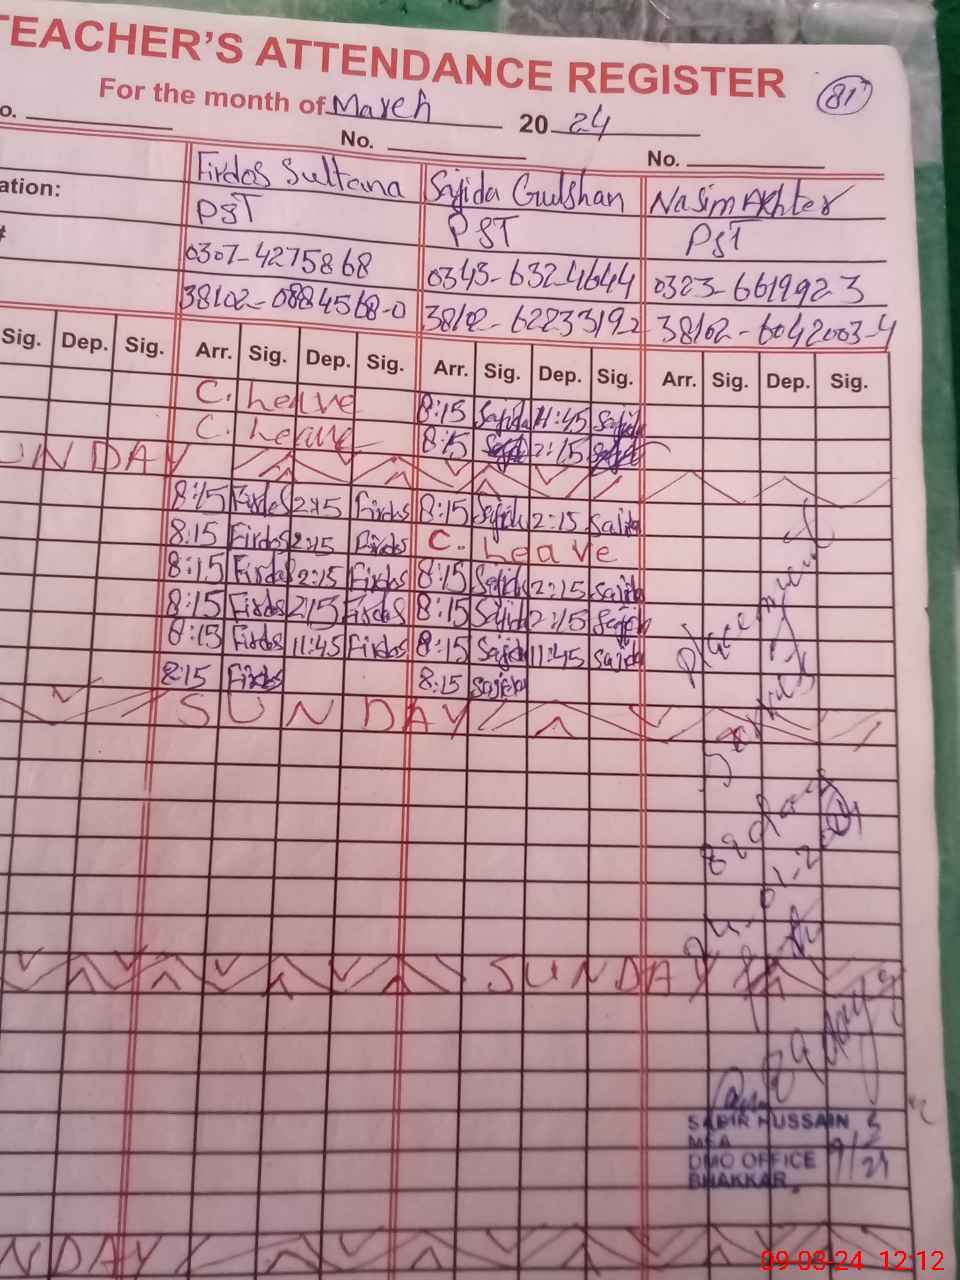 TEACHER'S ATTENDANCE REGISTER
81
For the month of March 2024
o. No. No.
Firdos Sultana Sajida Gulshan Nasim Akhter
ation: PST PST PST
# 0307-4275868 0343-6324644 0323-6619923
38102-0884568-0 38102-62233192 38102-6042003-4
Sig. Dep. Sig. Arr. Sig. Dep. Sig. Arr. Sig. Dep. Sig. Arr. Sig. Dep. Sig.
C. Leave 8:15 Sajida 11:45 Sajida
C. Leave 8:15 Sajida 2:15 Sajida
UNDAY
8:15 Firdos 2:15 Firdos 8:15 Sajida 2:15 Sajida
8:15 Firdos 2:15 Firdos C. Leave
8:15 Firdos 2:15 Firdos 8:15 Sajida 2:15 Sajida
8:15 Firdos 2:15 Firdos 8:15 Sajida 2:15 Sajida
8:15 Firdos 11:45 Firdos 8:15 Sajida 11:45 Sajida
8:15 Firdos 8:15 Sajida
placement
SUNDAY
89 days
SUNDAY
89 days
SABIR HUSSAIN
MEA
DMO OFFICE
BHAKKAR.
NDAY
09-03-24 12:12